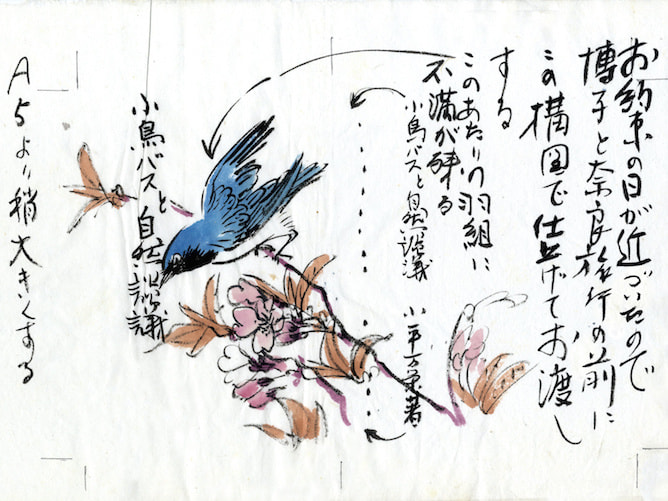 お約束の日が近づいたので
博子と奈良旅行の前に
この構図で仕上げてお渡し
する
このあたりの羽組に
不満が残る
小鳥バスと自然談議
小平万栄著
小鳥バスと自然談議
A5より稍大きくする